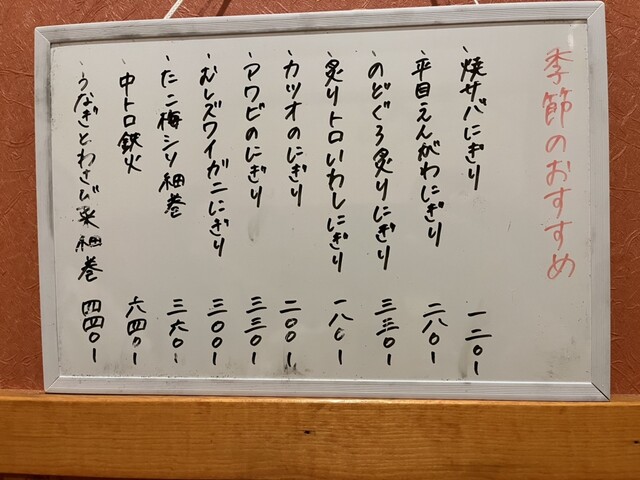 季節のおすすめ
、焼サバにぎり 一二〇ー
、平目えんがわにぎり 二八〇ー
、のどぐろ炙りにぎり 三三〇ー
、炙りトロいわしにぎり 一八〇ー
、カツオのにぎり 二〇〇ー
、アワビのにぎり 三三〇ー
、むしズワイガニにぎり 三〇〇ー
、たこ梅シソ細巻 三六〇ー
、中トロ鉄火 六四〇ー
、うなぎとわさび菜細巻 四四〇ー